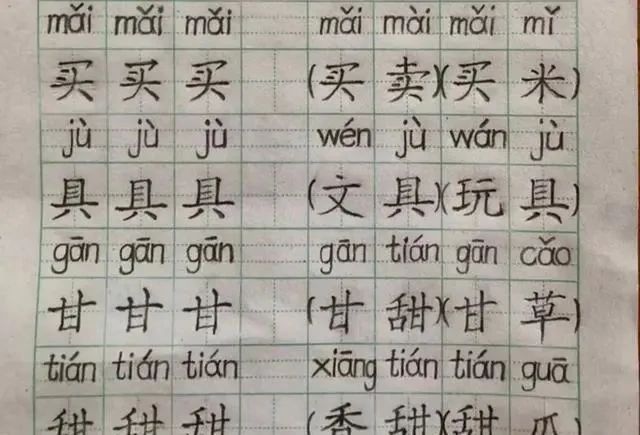 mǎi mǎi mǎi mǎi mài mǎi mǐ
买 买 买 (买 卖)(买 米)
jù jù jù wén jù wán jù
具 具 具 (文 具)(玩 具)
gān gān gān gān tián gān cǎo
甘 甘 甘 (甘 甜)(甘 草)
tián tián tián xiāng tián tián guā
甜 甜 甜 (香 甜)(甜 瓜